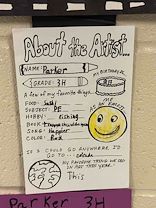 About the Artist...
NAME: Parker
MY BIRTHDAY IS:
GRADE: 3H
A few of my favorite things...
FOOD:
SUBJECT: PE
HOBBY: fishing
BOOK:
SONG: Happier
COLOR: Red
ME AS AN EMOJI
IF I COULD GO ANYWHERE I'D
GO TO...
MY FAVORITE THING WE DID
IN ART THIS YEAR...
This
Parker 3H